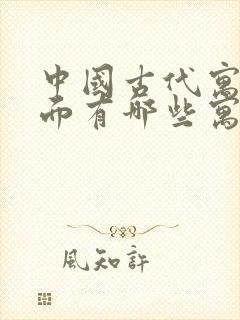 中國古代寓
而有哪些寓
風知許